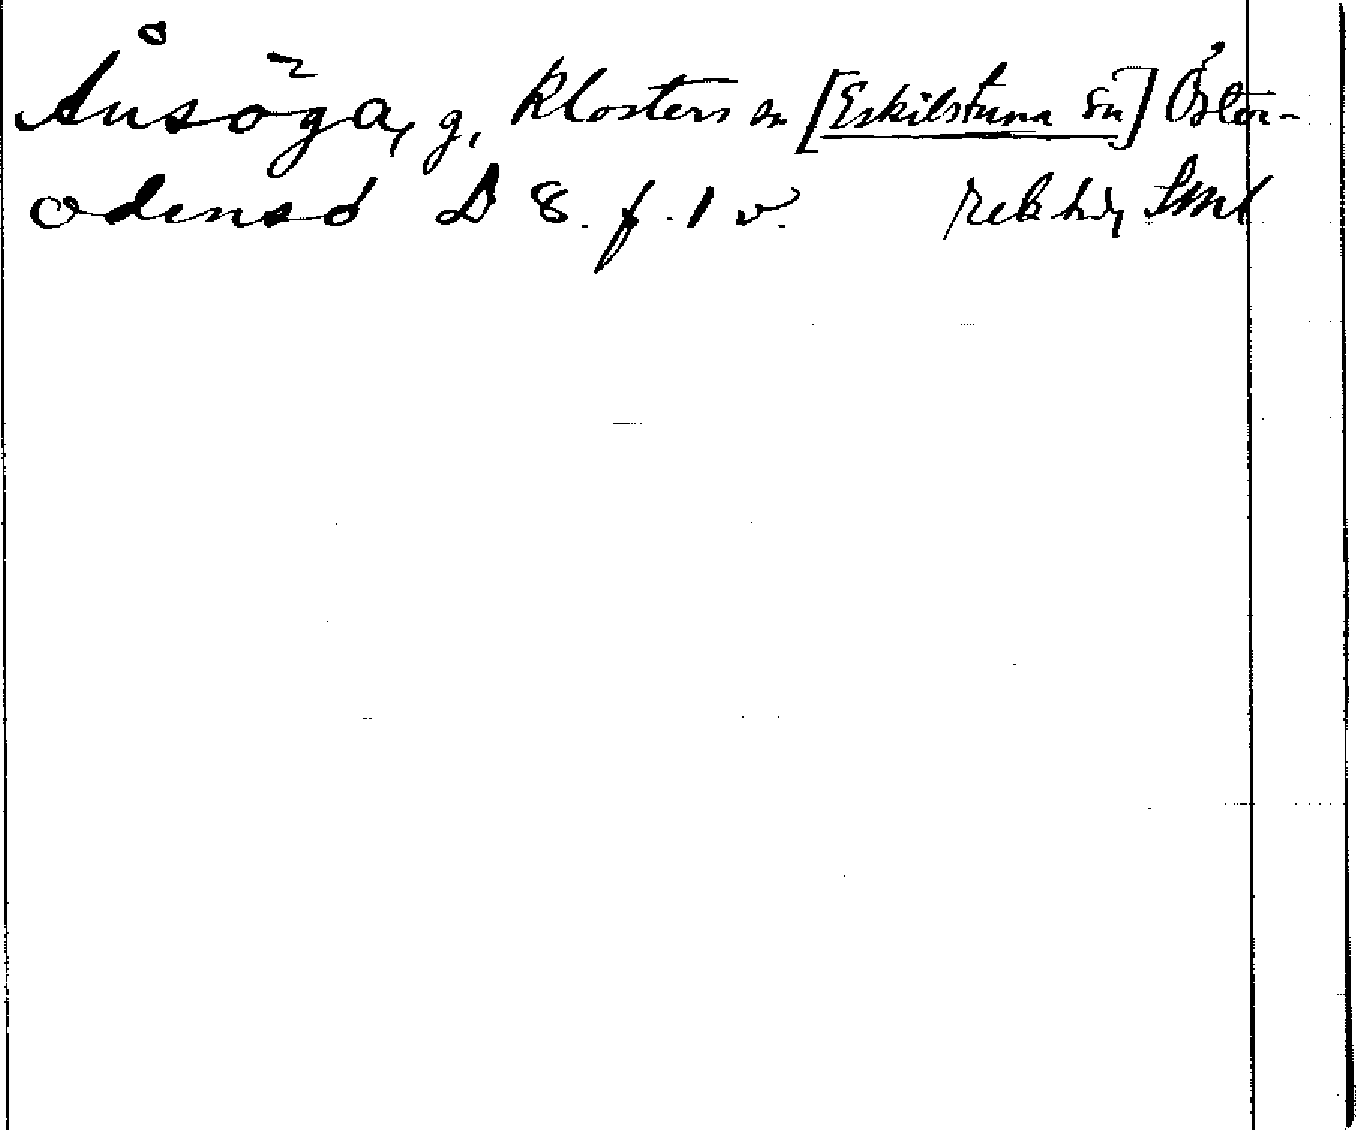 Åusöga, g, Klosters sn [Eskilstuna sn] Öster-
odensd D 8. f. 1 v. rekhdr Sml